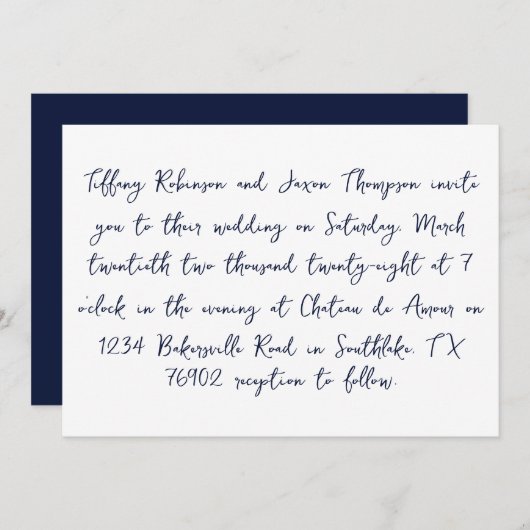 Tiffany Robinson and Jaxon Thompson invite
you to their wedding on Saturday, March
twentieth two thousand twenty-eight at 7
o'clock in the evening at Chateau de Amour on
1234 Bakersville Road in Southlake, TX
76902 reception to follow.